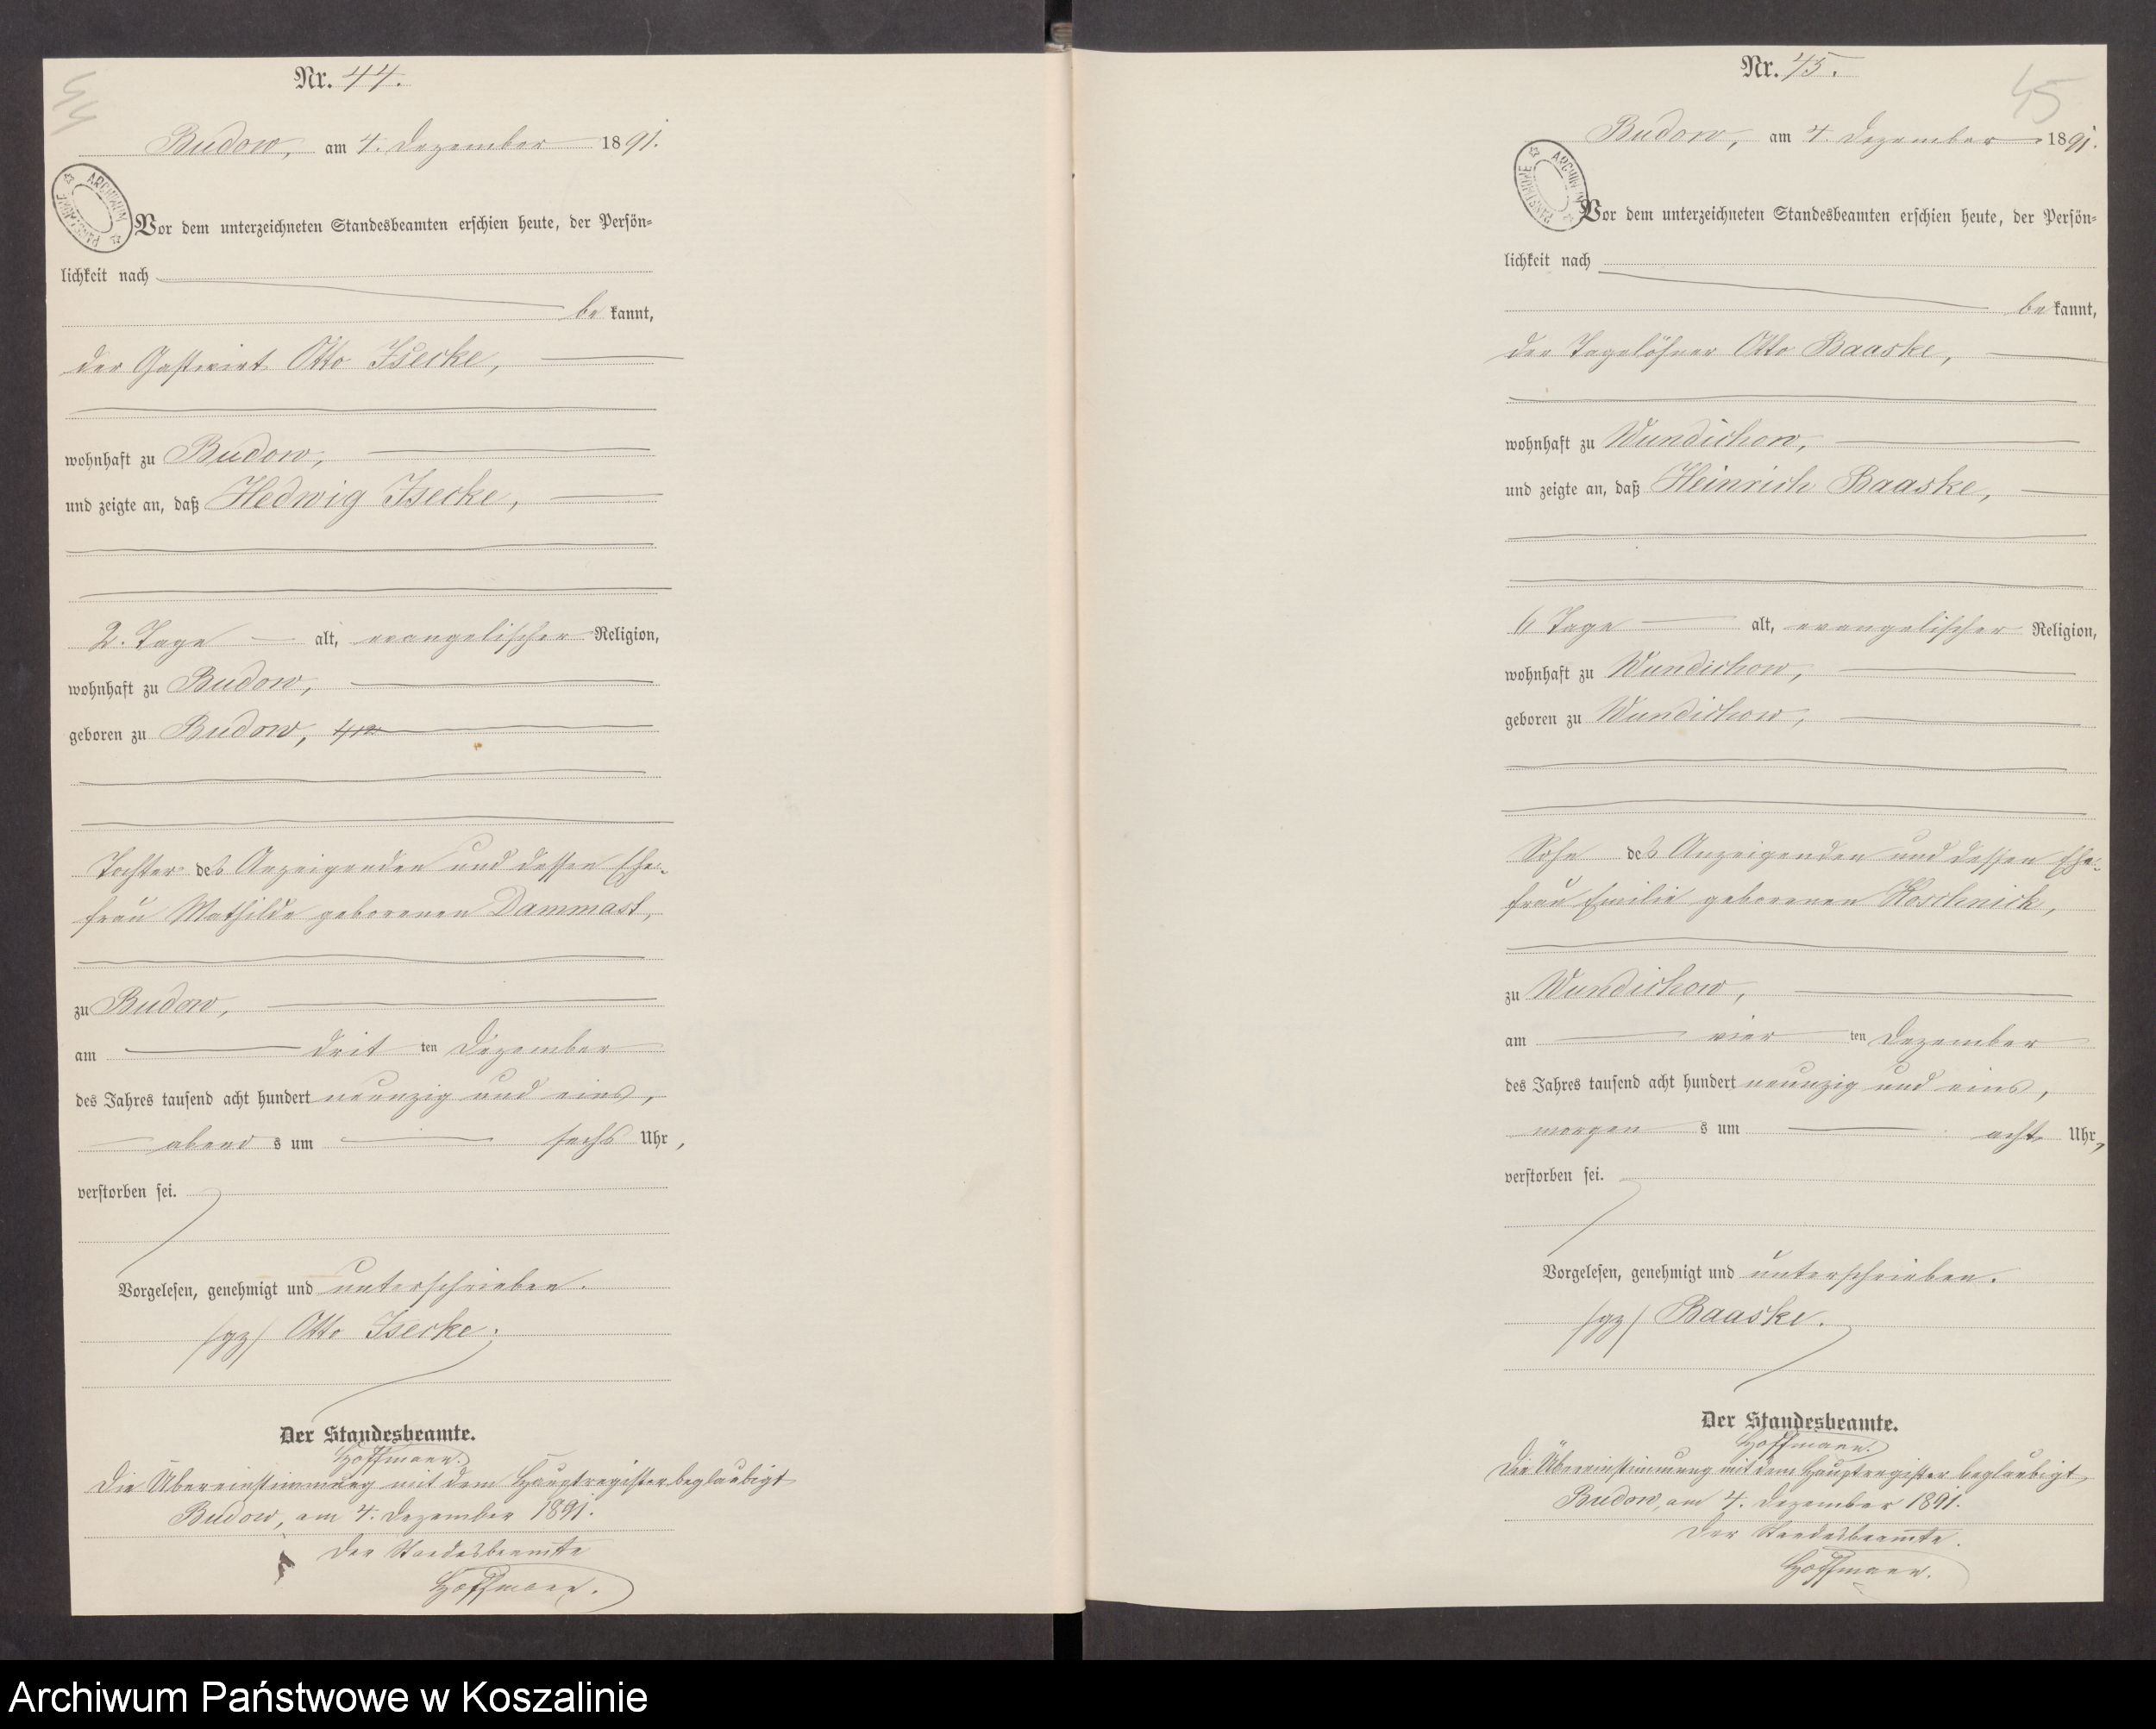 44
Nr. 44.
Budow, am 4. Dezember 1891.
ARCHIWUM PAŃSTWOWE
Vor dem unterzeichneten Standesbeamten erschien heute, der Persön-
lichkeit nach
be kannt,
der Gastwirt Otto Isecke,
wohnhaft zu Budow,
und zeigte an, daß Hedwig Isecke,
2. Tage alt, evangelischer Religion,
wohnhaft zu Budow,
geboren zu Budow,
Tochter des Anzeigenden und dessen Ehe-
frau Mathilde geborenen Dammast,
zu Budow,
am drit ten Dezember
des Jahres tausend acht hundert neunzig und eins,
abend s um sechs Uhr,
verstorben sei.
Vorgelesen, genehmigt und unterschrieben.
(gz) Otto Isecke.
Der Standesbeamte.
Hoffmann.
Die Übereinstimmung mit dem Hauptregister beglaubigt
Budow, am 4. Dezember 1891.
Der Standesbeamte
Hoffmann.
45
Nr. 45.
Budow, am 4. Dezember 1891.
ARCHIWUM PAŃSTWOWE
Vor dem unterzeichneten Standesbeamten erschien heute, der Persön-
lichkeit nach
be kannt,
der Tagelöhner Otto Baaske,
wohnhaft zu Wundichow,
und zeigte an, daß Heinrich Baaske,
6 Tage alt, evangelischer Religion,
wohnhaft zu Wundichow,
geboren zu Wundichow,
Sohn des Anzeigenden und dessen Ehe-
frau Emilie geborenen Koschnick,
zu Wundichow,
am vier ten Dezember
des Jahres tausend acht hundert neunzig und eins,
morgen s um acht Uhr,
verstorben sei.
Vorgelesen, genehmigt und unterschrieben.
(gz) Baaske.
Der Standesbeamte.
Hoffmann.
Die Übereinstimmung mit dem Hauptregister beglaubigt
Budow, am 4. Dezember 1891.
Der Standesbeamte.
Hoffmann.
Archiwum Państwowe w Koszalinie